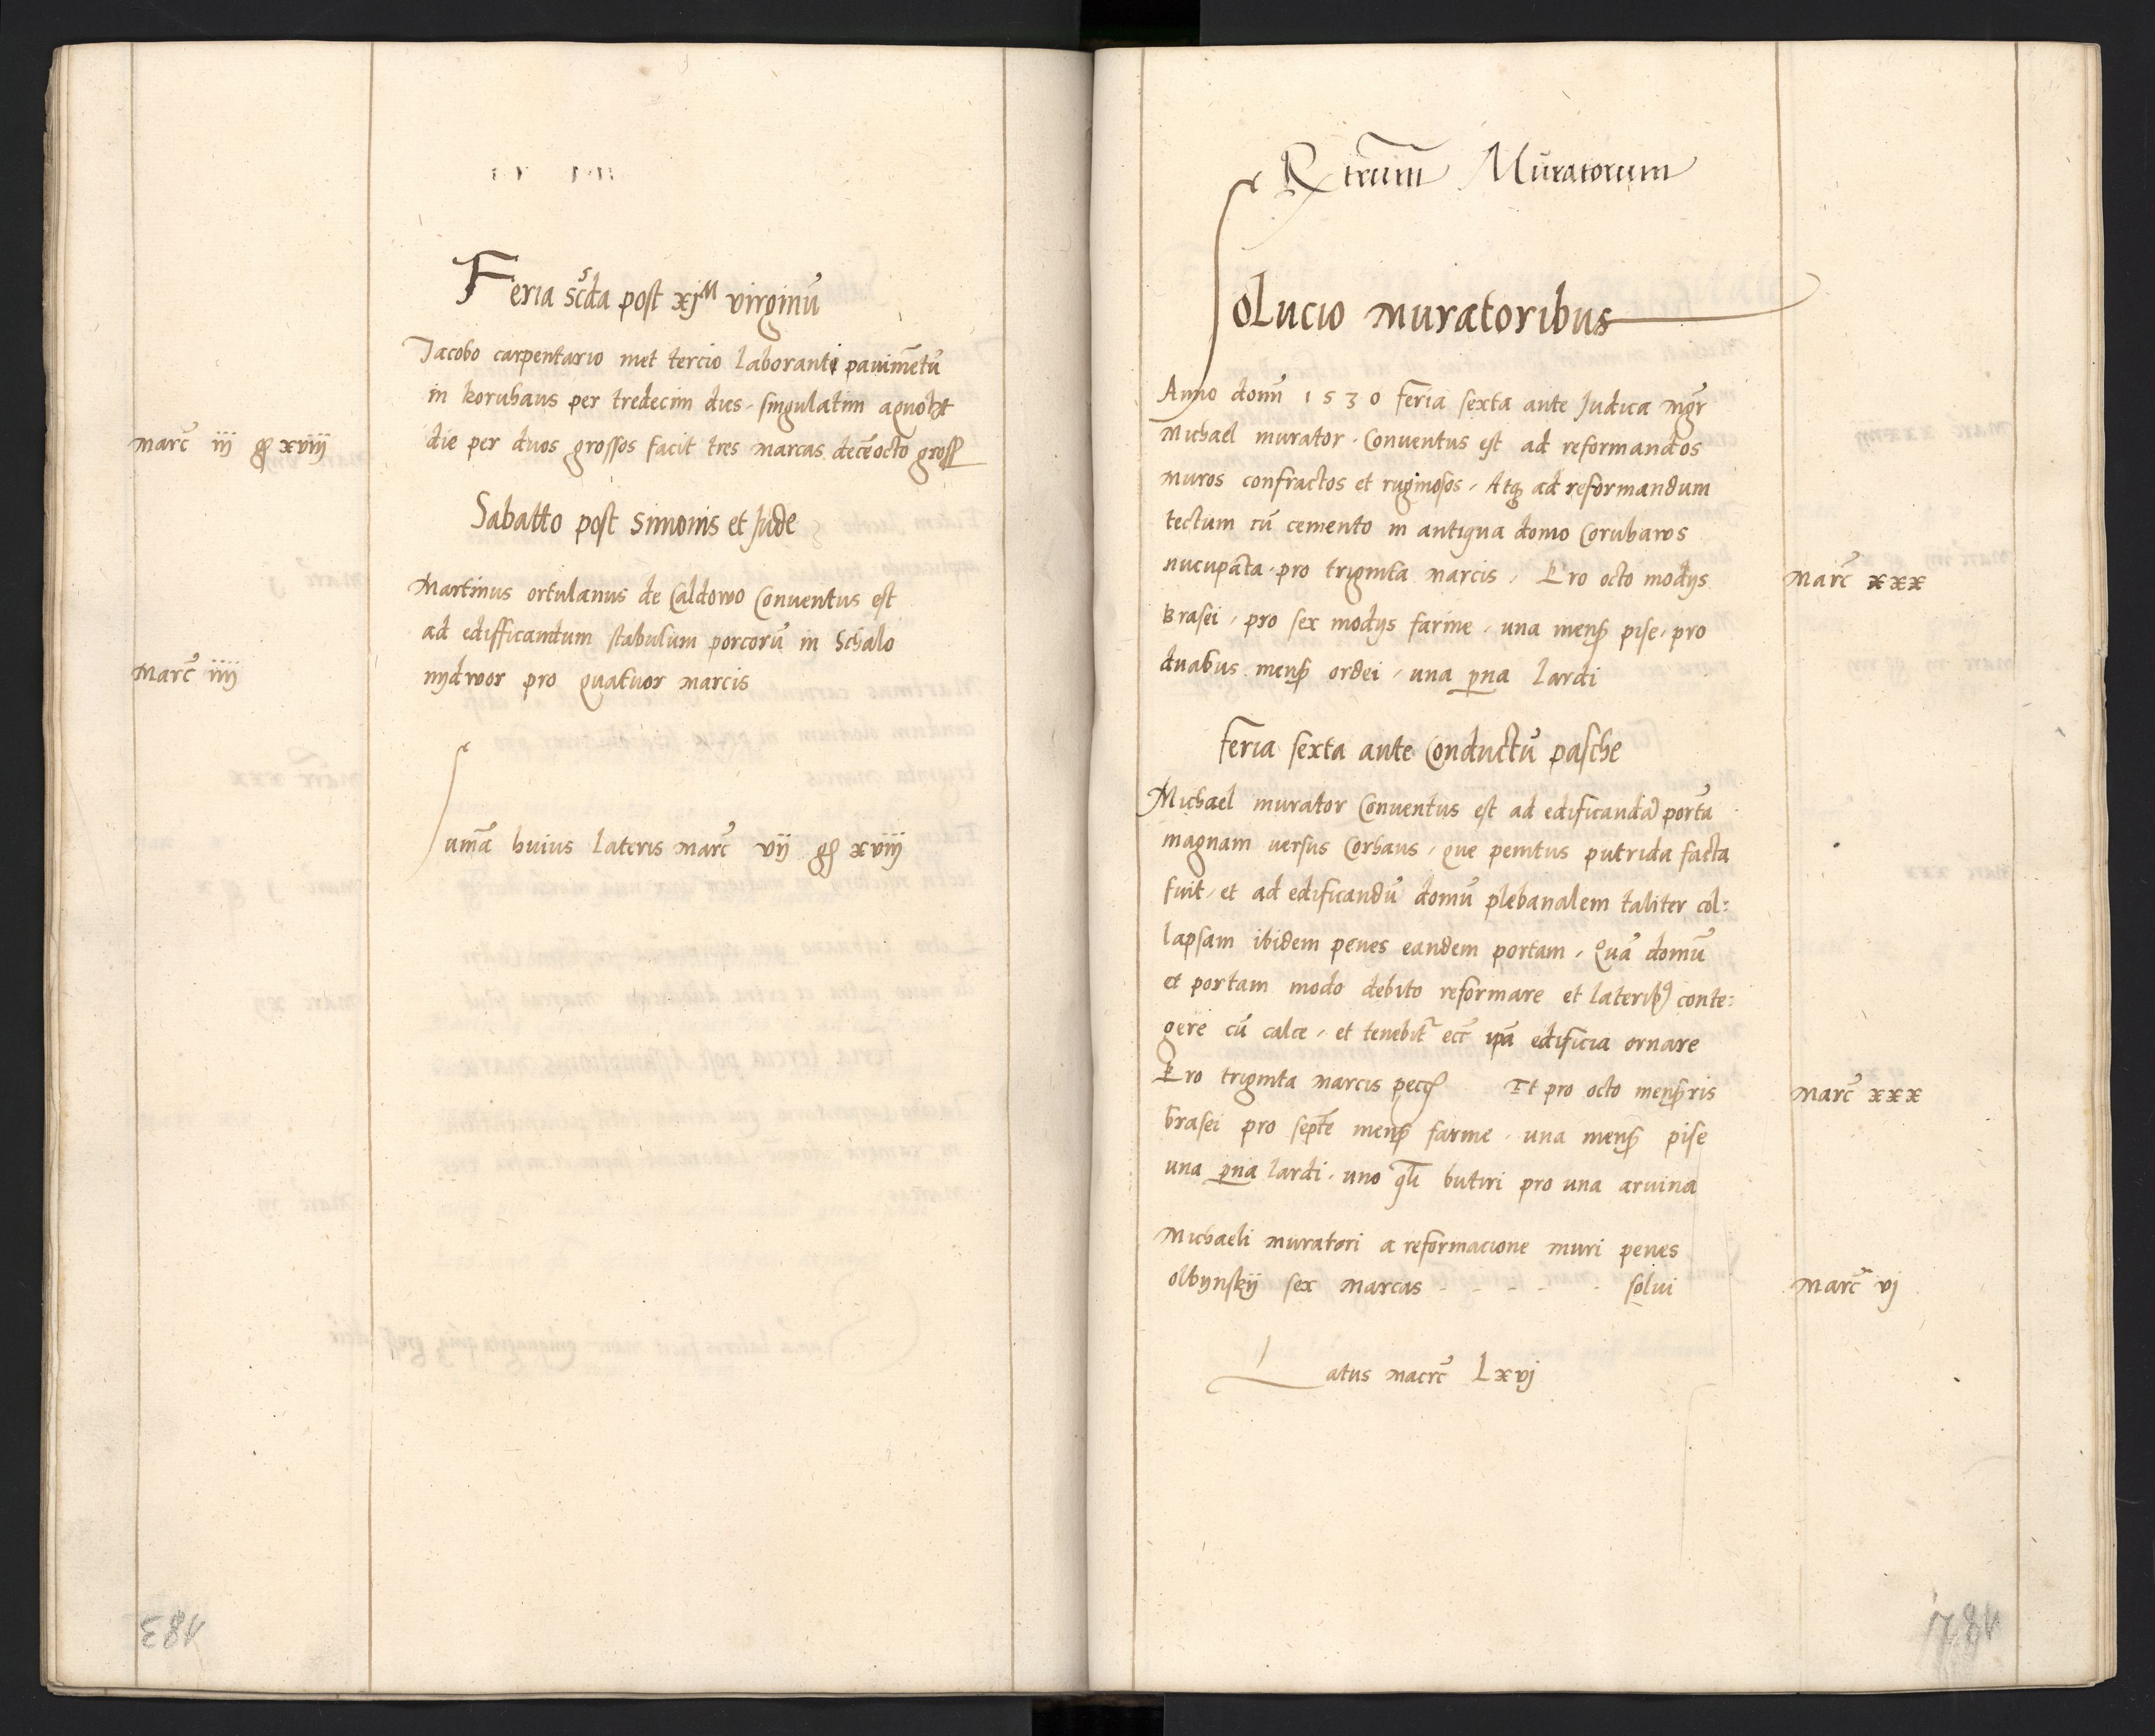 Feria scđa post xjᴹ virginū
Jacobo carpentario met tercio laboranti pauimētū
in korubaus per tredecim dies singulatim
die per duos grossos facit tres marcas decēocto gross
Marc̄ iij gͬ xviij
Sabatto post simonis et Jude
Martinus ortulanus de Caldowo Conuentus est
ad edifficandum stabulum porcorū in Schalo
nydwor pro quatuor marcis
Marc̄ iiij
Sum̄a huius lateris marc̄ vij gͬ xviij
183
Muratorum
Solucio muratoribus
Anno domī 1530 feria sexta ante Judica mgr̄
Michael murator Conuentus est ad reformandos
muros confractos et ruginosos, Atq̄ ad reformandum
tectum cū cemento in antiqua domo Corubaws
nucupāta pro triginta marcis, Pro octo modijs
Brasei, pro sex modijs farine, una mens̄ pise, pro
duabus mens̄ ordei, una ꝑna lardi
Marc̄ xxx
feria sexta ante Conductū pasche
Michael murator Conuentus est ad edificandā portā
magnam uersus Corhaus, que penitus putrida facta
fuit, et ad edificandū domū plebanalem taliter col:
lapsam ibidem penes eandem portam, Quā domū
et portam modo debito reformare et laterib9 conte:
gere cū calce, et tenebit᷑ ec̄t ip̄a edificia ornare
Pro triginta marcis pecc̄ Et pro octo mens̄ris
brasei pro septē mens̄ farine, una mens̄ pise
una ꝑna lardi, uno butiri pro una aruina
Marc̄ xxx
Michaeli muratori a reformacione muri penes
olbynskij sex marcas - - - - - solui
Marc̄ vj
Latus macrc̄ Lxvj